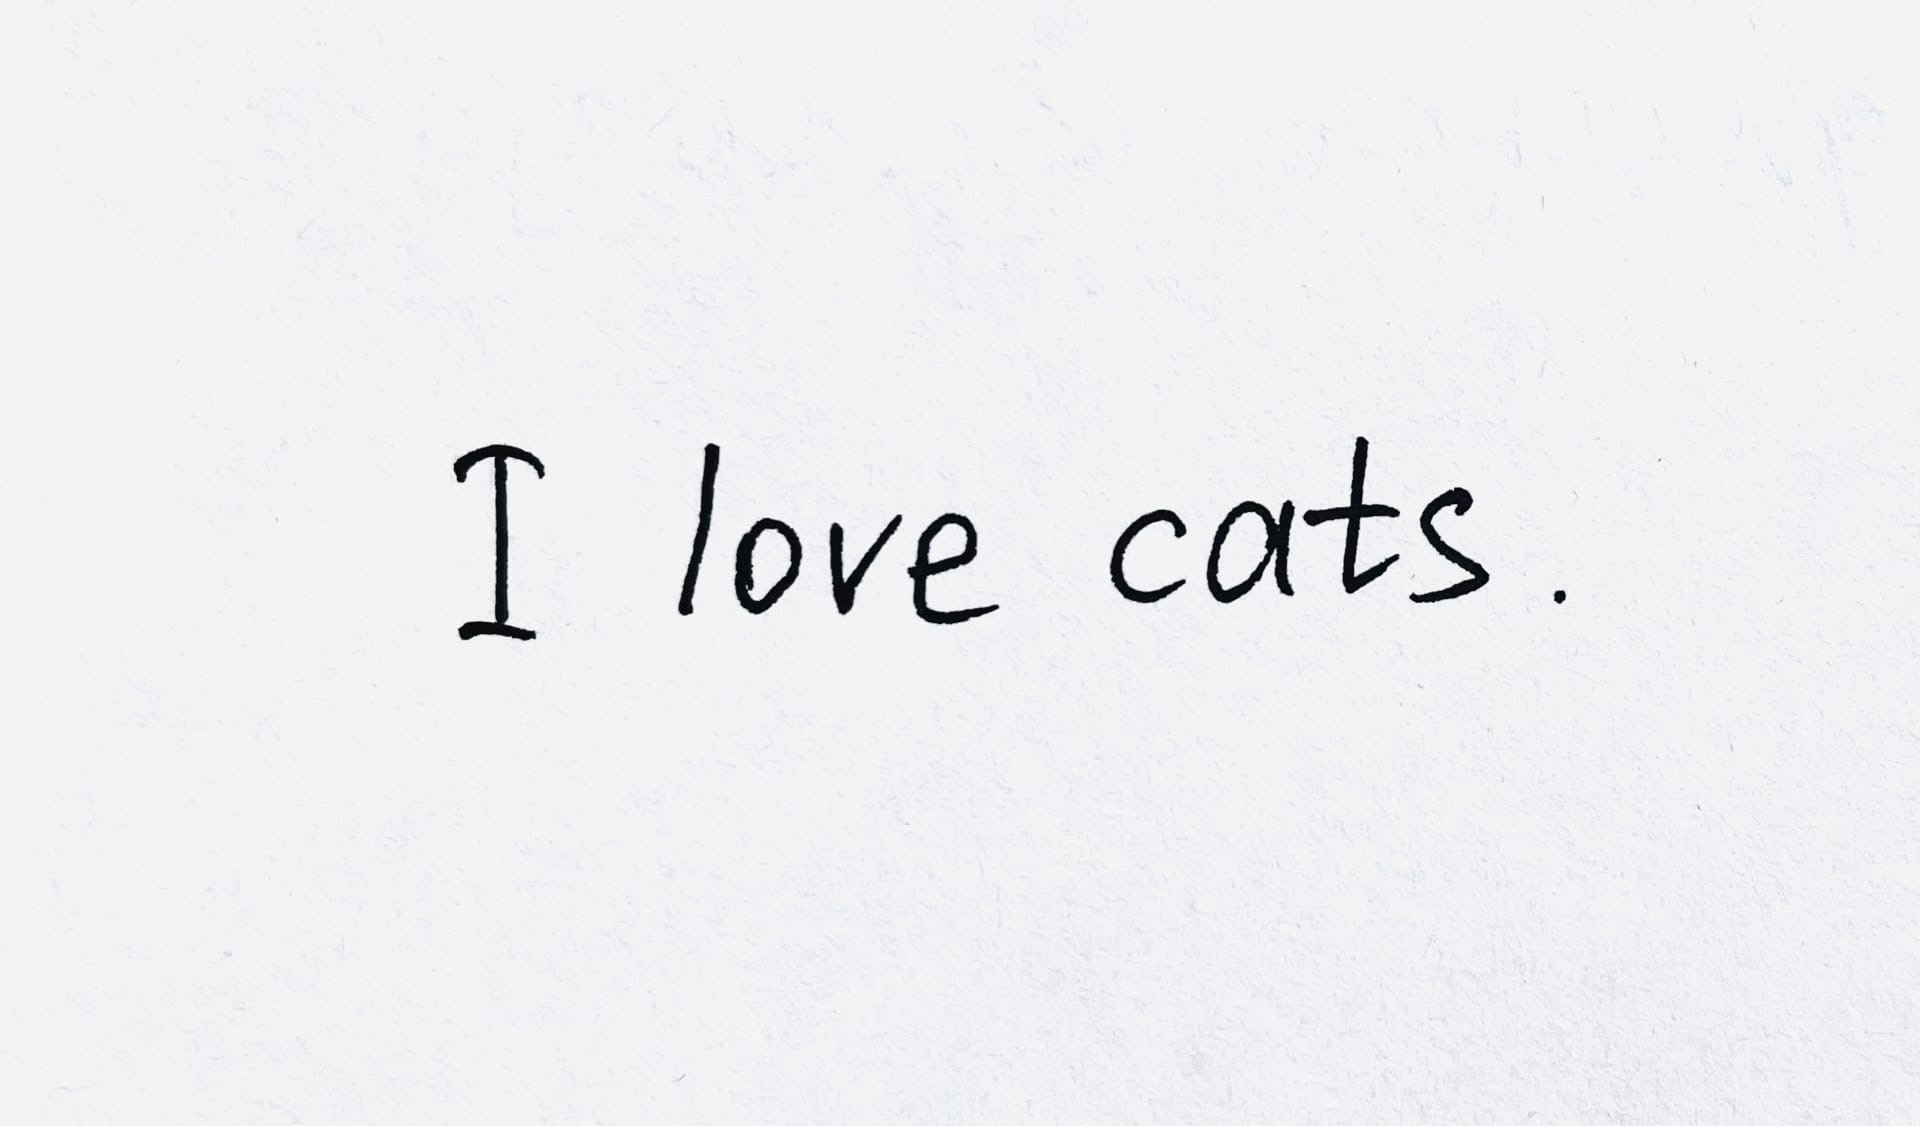 I love cats.